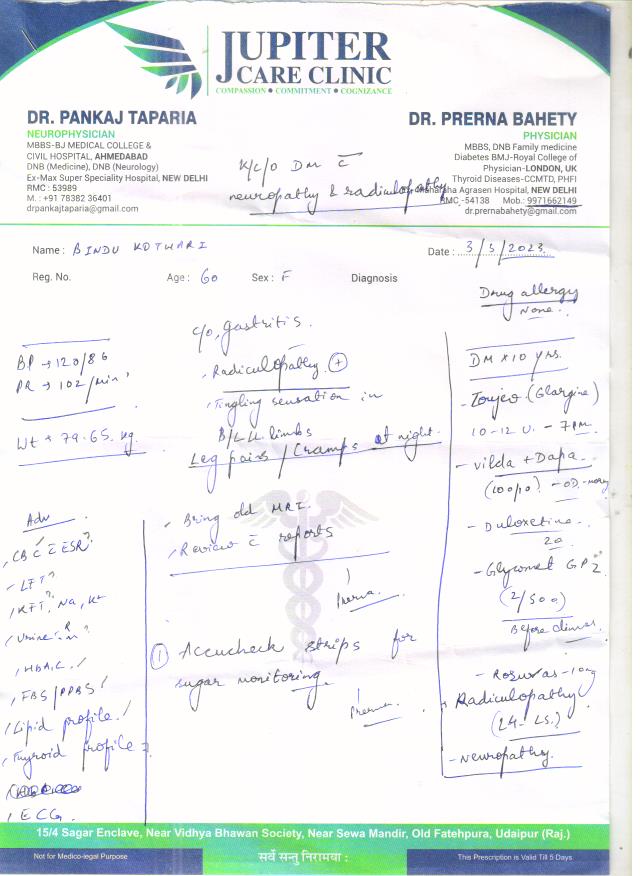 JUPITER
CARE CLINIC
COMPASSION • COMMITMENT • COGNIZANCE
DR. PANKAJ TAPARIA
NEUROPHYSICIAN
MBBS-BJ MEDICAL COLLEGE &
CIVIL HOSPITAL, AHMEDABAD
DNB (Medicine), DNB (Neurology)
Ex-Max Super Speciality Hospital, NEW DELHI
RMC : 53989
M. : +91 78382 36401
drpankajtaparia@gmail.com
DR. PRERNA BAHETY
PHYSICIAN
MBBS, DNB Family medicine
Diabetes BMJ-Royal College of
Physician-LONDON, UK
Thyroid Diseases-CCMTD, PHFI
Agrasen Hospital, NEW DELHI
RMC -54138 Mob.: 9971662149
dr.prernabahety@gmail.com
K/C/O DM c̄
neuropathy & radiculopathy
Name : BINDU KOTHARI
Date : 3/5/2023
Reg. No. Age : 60 Sex : F Diagnosis
Drug allergy
None.
BP → 120/86
PR → 102/min
Wt → 79.65 kg.
c/o, gastritis.
, Radiculopathy +
, Tingling sensation in
B/L LL limbs
Leg pains / Cramps at night.
, Bring old MRI.
, Review c̄ reports
Prerna.
① Accucheck strips for
sugar monitoring.
Prerna.
Adv
, CBC c̄ ESR?
- LFT?
, KFT, Na, K+
, Urine R/m?
, HbA1C. /
, FBS/PPBS /
, Lipid profile. /
, Thyroid profile ?
, ECG.
DM x 10 yrs.
- Toujeo (Glargine)
10-12 U. - 7 PM.
- Vilda + Dapa
(100/10) - OD - morning
- Duloxetine
20
- Glycomet GP2
(2/500)
Before dinner.
- Rosuvas - 10mg
, Radiculopathy
(L4-L5.)
- Neuropathy.
15/4 Sagar Enclave, Near Vidhya Bhawan Society, Near Sewa Mandir, Old Fatehpura, Udaipur (Raj.)
Not for Medico-legal Purpose
सर्वे सन्तु निरामया :
This Prescription is Valid Till 5 Days